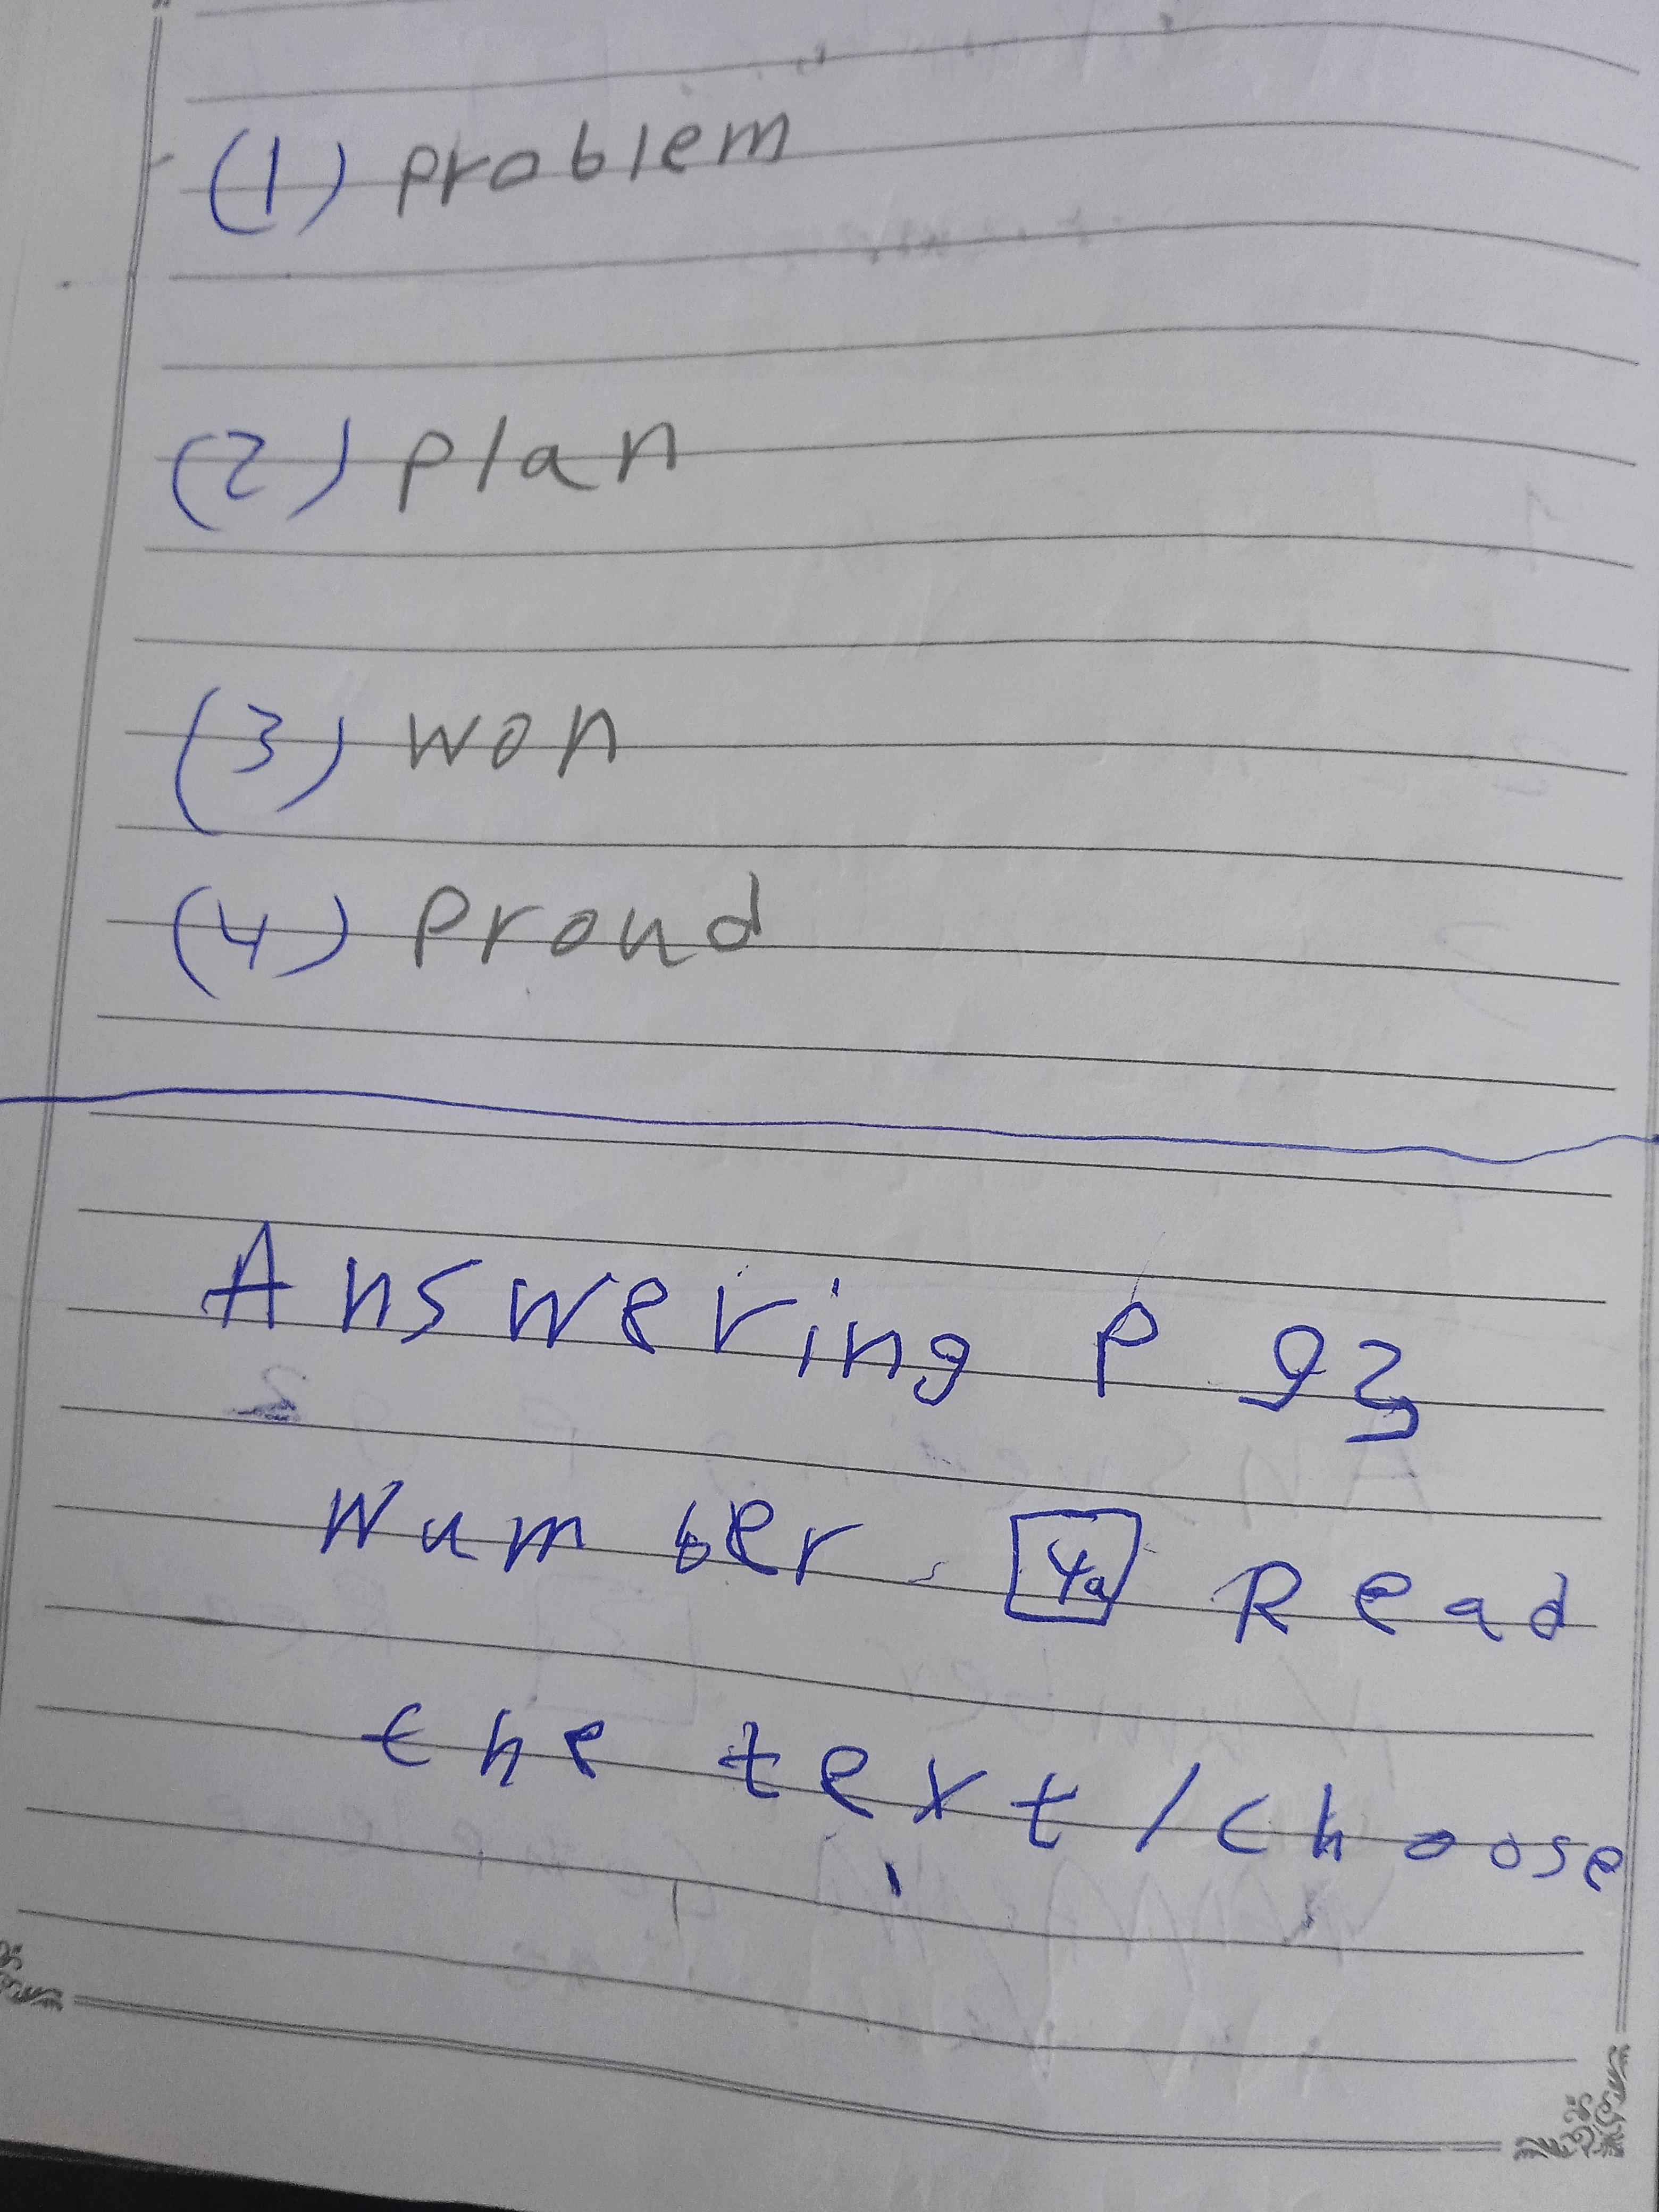 (1) problem
(2) plan
(3) won
(4) proud
Answering P 93
Number. 4a Read
the text / choose